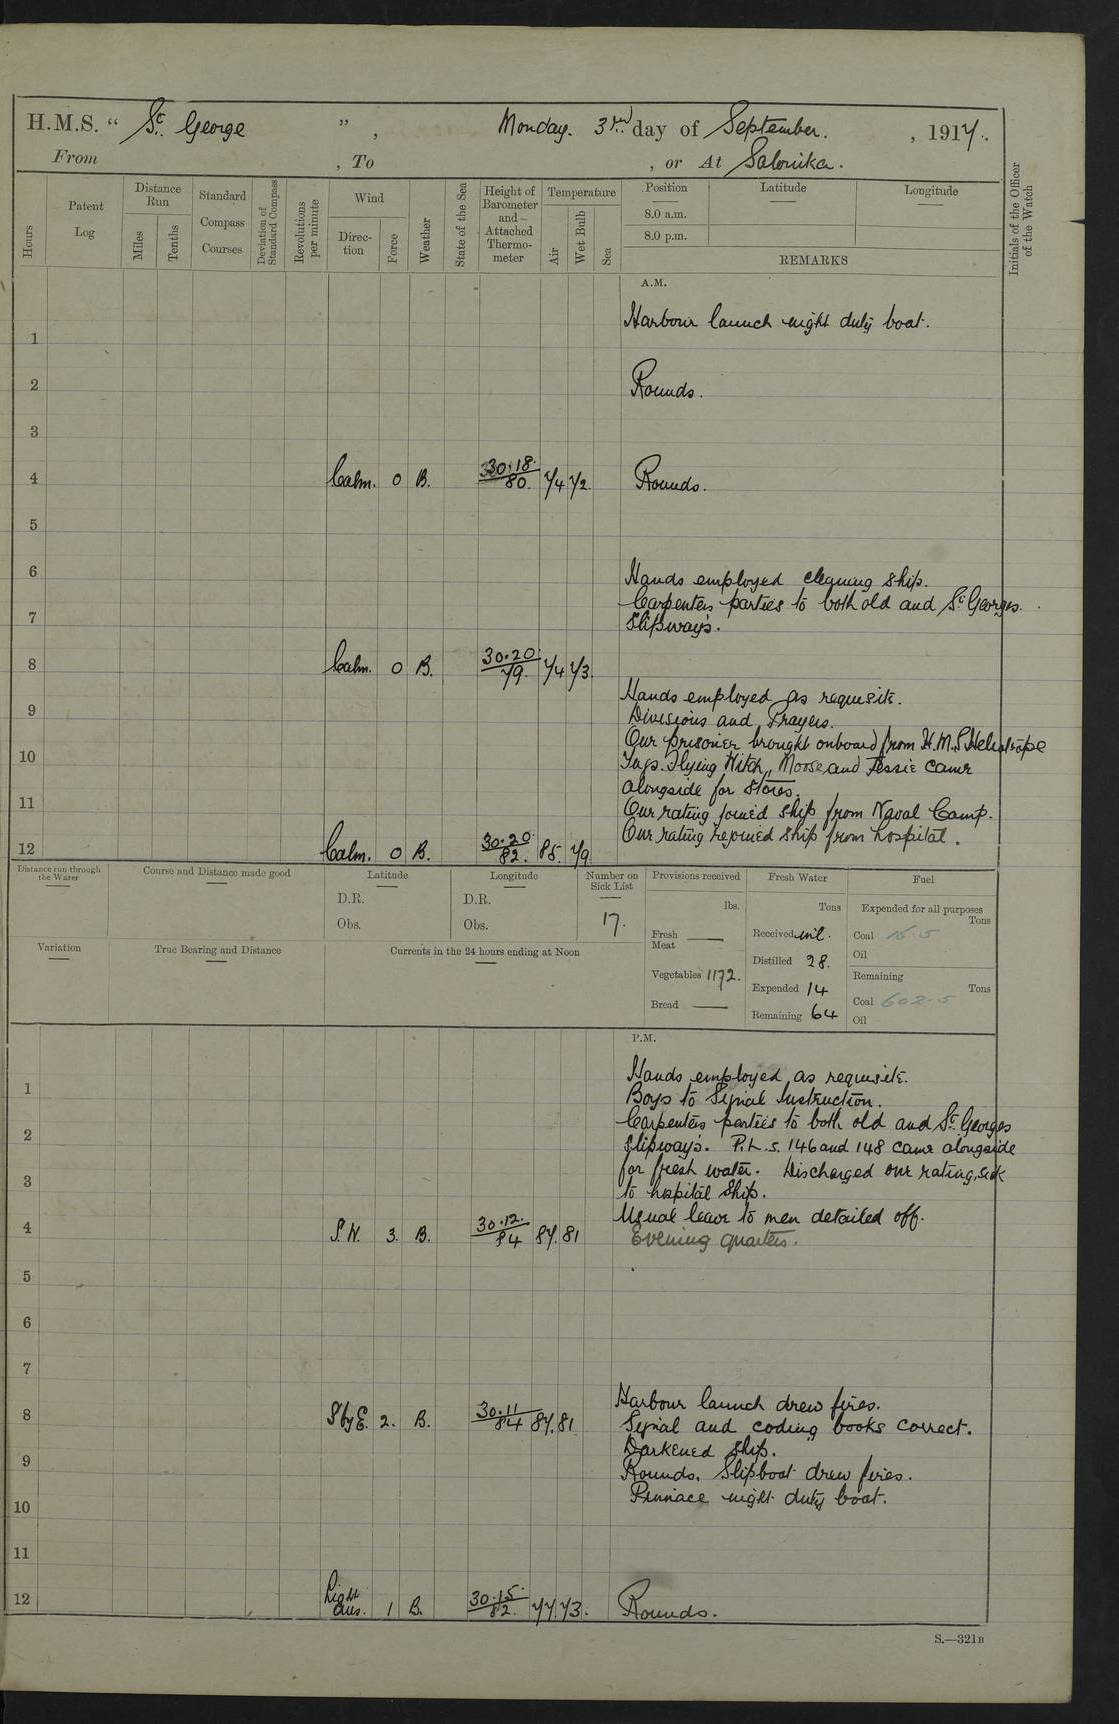 H.M.S. “ St. George ” , Monday. 3rd day of September. , 1917.
From , To , or At Salonika.
Hours
Patent Log
Distance Run
Miles
Tenths
Standard Compass Courses
Deviation of Standard Compass
Revolutions per minute
Wind
Direction
Force
Weather
State of the Sea
Height of Barometer and Attached Thermometer
Temperature
Air
Wet Bulb
Sea
Position Latitude Longitude
8.0 a.m.
8.0 p.m.
REMARKS
Initials of the Officer of the Watch
A.M.
Harbour launch night duty boat.
1
2 Rounds.
3
4 Calm. 0 B. 30.18 80. 74 72. Rounds.
5
6 Hands employed cleaning ship.
Carpenters parties to both old and St Georges
7 Slipways.
8 Calm. 0 B. 30.20 79. 74 73.
Hands employed as requisite.
9 Divisions and Prayers.
Our prisoner brought onboard from H.M.S Heliotrope
10 Tugs. Flying Witch, Moose and Jessie came
alongside for stores.
11 Our rating joined ship from Naval Camp.
12 Calm. 0 B. 30.20 82. 85. 79 Our rating rejoined ship from hospital.
Distance run through the Water
Course and Distance made good
Latitude
D.R.
Obs.
Longitude
D.R.
Obs.
Number on Sick List
17.
Provisions received
lbs.
Fresh Meat
Vegetables 1172.
Bread
Fresh Water
Tons
Received nil.
Distilled 28.
Expended 14
Remaining 64
Fuel
Expended for all purposes
Tons
Coal 16.5
Oil
Remaining
Tons
Coal 602.5
Oil
Variation
True Bearing and Distance
Currents in the 24 hours ending at Noon
P.M.
Hands employed as requisite.
1 Boys to Signal Instruction.
Carpenters parties to both old and St. Georges
2 Slipways. P.L.s. 146 and 148 came alongside
for fresh water. Discharged one rating, sick
3 to hospital Ship.
Usual leave to men detailed off.
4 S.W. 3. B. 30.12. 84 87. 81 Evening quarters.
5
6
7
Harbour launch drew fires.
8 S by E. 2. B. 30.11 84 87. 81 Signal and coding books correct.
Darkened ship.
9 Rounds. Slipboat drew fires.
10 Pinnace night duty boat.
11
12 Light airs. 1 B. 30.15 82. 77. 73. Rounds.
S.—321B